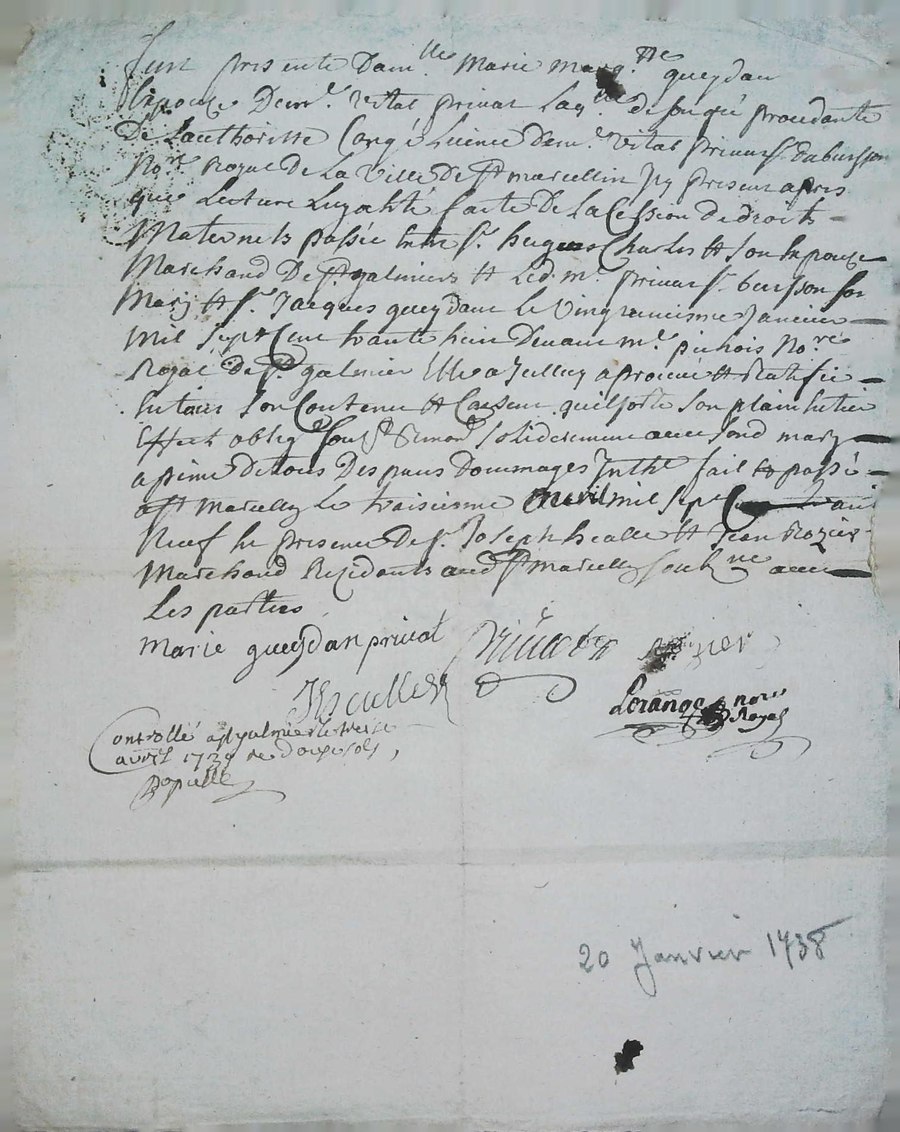 fut presente Dam.lle Marie Marg.tte queydan
Epouse De m.e vitat privat Laq.lle de son gré procedante
De Lauthoritte Congé Licence de m.e vitat privat s.r dubuisson
No.re Royal De La Ville De St marcellin Jcy present apres
que Lecture Luy a hté faitte De La Cession De droits
Maternels passée Entre s.r hugues Charles et son Epouse
Marchand De st galmier et Led. m.e privat s.r buisson son
Mary et s.r Jacques queydant le vingt Janvier
Mil sept Cent trante huit Devant m.e pichois No.re
Royal de st galmier Elle a aprouve et Ratifie
En tout son Contenu et Consent quil sorte son plain Entier
Effect oblig solideremment avec sond mary
a peine De tous Despans Dommages Jnth.t fait et passé
a st marcellin le troisieme avril mil sept
Neuf En presence De s.r Joseph healle et Jean Rozier
Marchand Rezidants aud st marcellin avec
Les parties
marie queydan privat Rozier
Jhealle Lerange nore Royal
Controllé a st galmier le treize
avril 1739 re douze sols
20 Janvier 1738